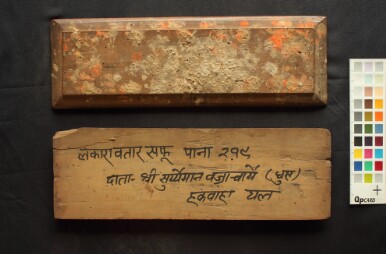 लंकारावतार सफू पाना २१९
दाता - श्री सुर्य्यमान वज्राचार्य (धुस)
हकवाहा यल
QPcard